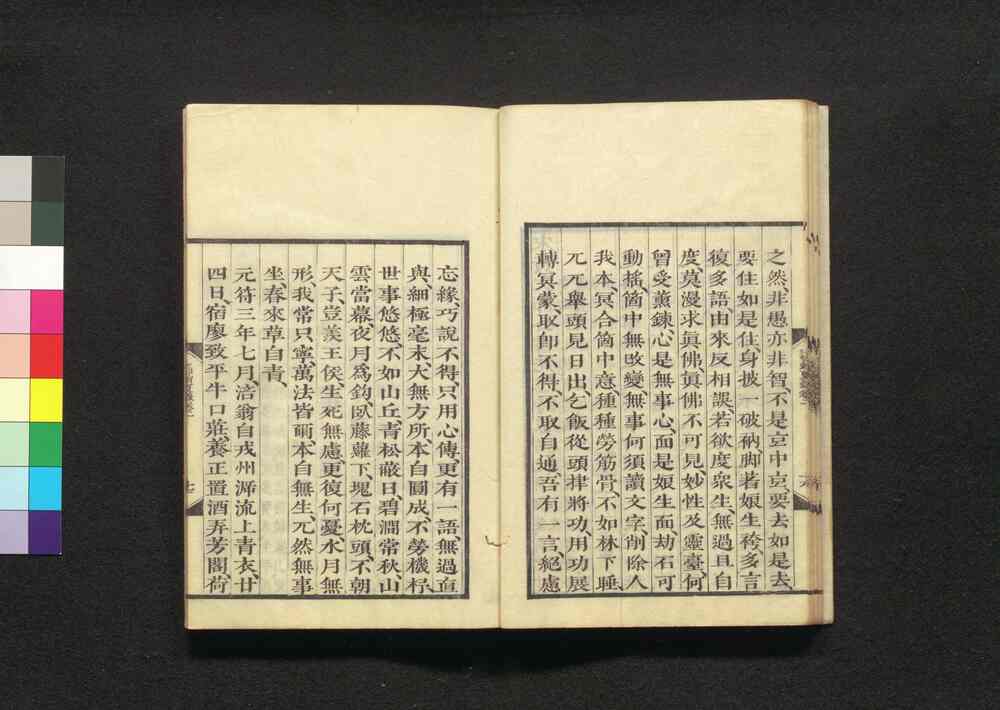 之然、非愚亦非智、不是亰中亰、要去如是去、
要住如是住、身披一破衲、脚着娘生袴、多言
復多語、由來反相誤、若欲度衆生、無過且自
度、莫漫求眞佛、眞佛不可見、妙性及靈臺、何
曾受薫鍊、心是無事心、面是娘生面、劫石可
動揺、箇中無攺變、無事何須讀文字、削除人
我本、冥合箇中意、種種勞筋骨、不如林下睡、
兀兀舉頭見日出、乞飯從頭捽、將功用功、展
轉冥蒙、取卽不得、不取自通、吾有一言、絕慮
忘緣、巧說不得、只用心傳、更有一語、無過直
與、細極毫末、大無方所、本自圓成、不勞機杼、
世事悠悠、不如山丘、青松蔽日、碧澗常秋、山
雲當幕、夜月爲鈎、臥藤蘿下、塊石枕頭、不朝
天子、豈羨王侯、生死無慮、更復何憂、水月無
形、我常只寧、萬法皆爾、本自無生、兀然無事
坐、春來草自青、
元符三年七月、涪翁自戎州泝流上青衣、廿
四日、宿廖致平牛口莊、養正置酒弄芳閣、荷